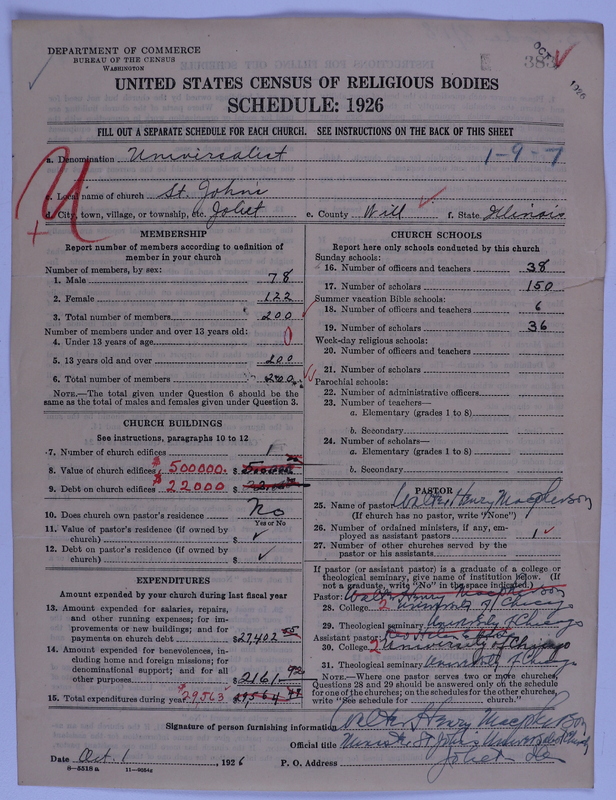 DEPARTMENT OF COMMERCE
BUREAU OF THE CENSUS
WASHINGTON
OCT 1926
UNITED STATES CENSUS OF RELIGIOUS BODIES
SCHEDULE: 1926
FILL OUT A SEPARATE SCHEDULE FOR EACH CHURCH. SEE INSTRUCTIONS ON THE BACK OF THIS SHEET
a. Denomination Universalist 1-9-7
c. Local name of church St. John's
d. City, town, village, or township, etc. Joliet e. County Will f. State Illinois
MEMBERSHIP
Report number of members according to definition of
member in your church
Number of members, by sex:
1. Male 78
2. Female 122
3. Total number of members 200
Number of members under and over 13 years old:
4. Under 13 years of age 0
5. 13 years old and over 200
6. Total number of members 200
NOTE.—The total given under Question 6 should be
same as the total of males and females given under Question 3.
CHURCH BUILDINGS
See instructions, paragraphs 10 to 12
7. Number of church edifices 1
8. Value of church edifices $500000. $
9. Debt on church edifices $22000 $
10. Does church own pastor's residence No
Yes or No
11. Value of pastor's residence (if owned by
church) $ ✓
12. Debt on pastor's residence (if owned by
church) $ ✓
EXPENDITURES
Amount expended by your church during last fiscal year
13. Amount expended for salaries, repairs,
and other running expenses; for im-
provements or new buildings; and for
payments on church debt $27,402
14. Amount expended for benevolences,
including home and foreign missions; for
denominational support; and for all
other purposes $2161.92
15. Total expenditures during year $29563 $29,564
CHURCH SCHOOLS
Report here only schools conducted by this church
Sunday schools:
16. Number of officers and teachers 38
17. Number of scholars 150
Summer vacation Bible schools:
18. Number of officers and teachers 6
19. Number of scholars 36
Week-day religious schools:
20. Number of officers and teachers
21. Number of scholars
Parochial schools:
22. Number of administrative officers
23. Number of teachers—
a. Elementary (grades 1 to 8)
b. Secondary
24. Number of scholars—
a. Elementary (grades 1 to 8)
b. Secondary
PASTOR
25. Name of pastor Walter Henry Macpherson
(If church has no pastor, write "None")
26. Number of ordained ministers, if any, em-
ployed as assistant pastors 1
27. Number of other churches served by the
pastor or his assistants
If pastor (or assistant pastor) is a graduate of a college or
theological seminary, give name of institution below. (If
not a graduate, write "No" in the space indicated.)
Pastor: Walter Henry Macpherson
28. College 2 University of Chicago
29. Theological seminary University of Chicago
Assistant pastor:
30. College 2 University of Chicago
31. Theological seminary University of Chicago
NOTE.—Where one pastor serves two or more churches,
Questions 28 and 29 should be answered only on the schedule
for one of the churches; on the schedules for the other churches,
write "See schedule for church."
Signature of person furnishing information Walter Henry Macpherson
Official title Minister St John's Universalist Church
Date Oct. 1, 1926 P. O. Address Joliet Ill
8-5518a 11-9254